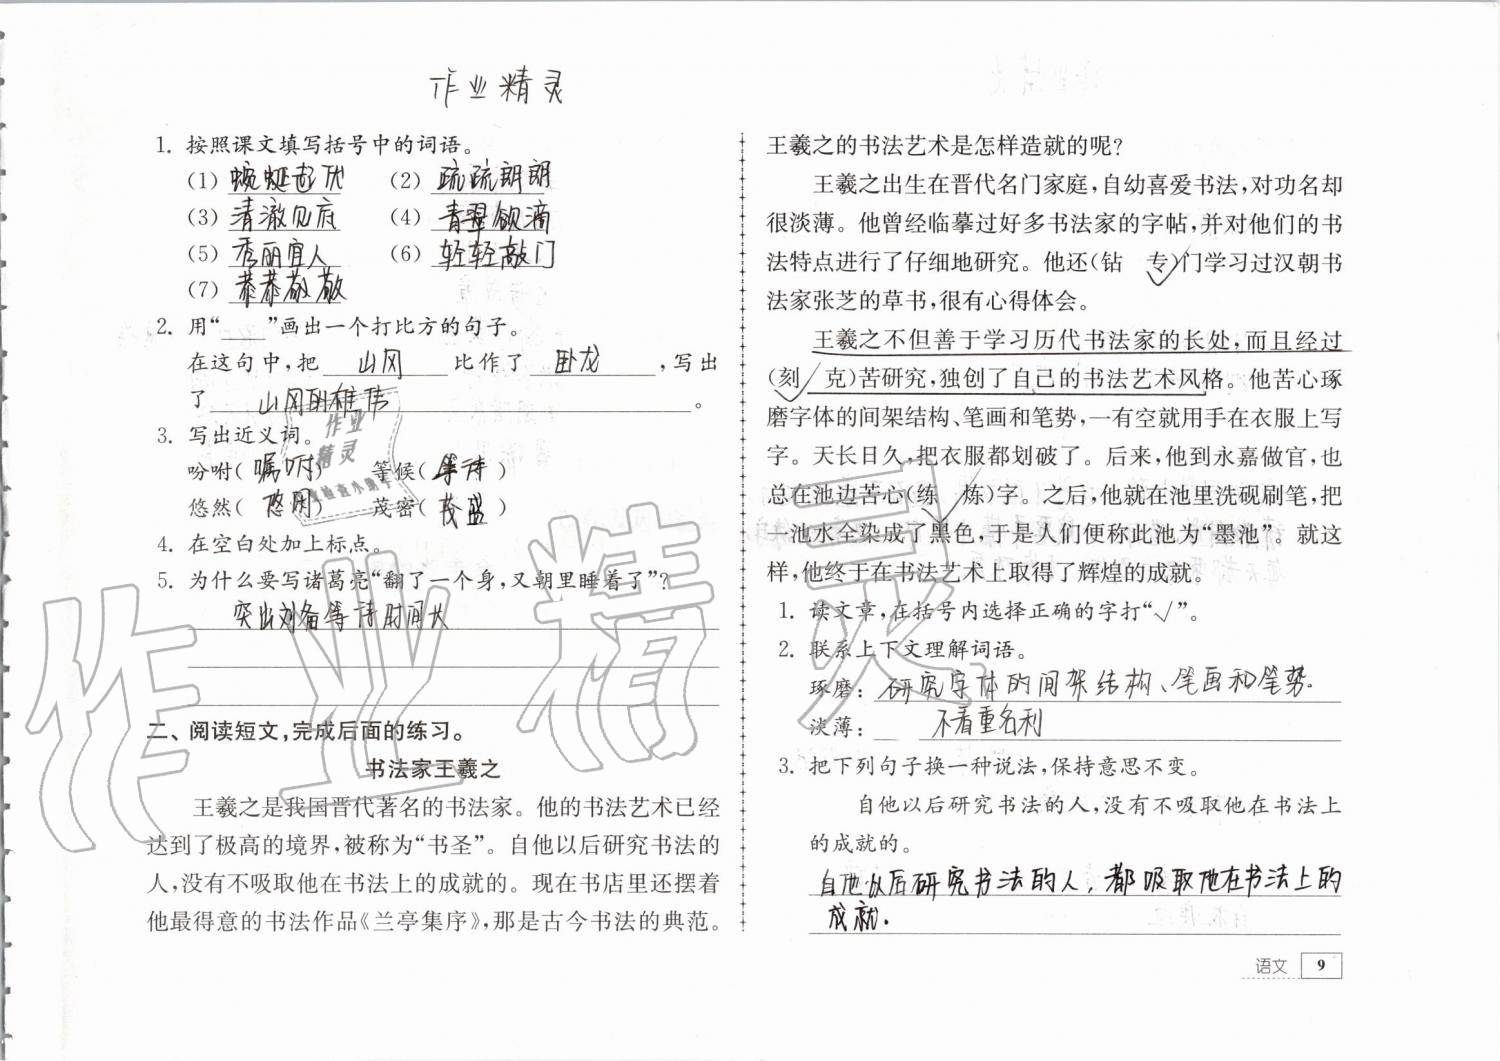 作业精灵
1. 按照课文填写括号中的词语。
(1) 蜿蜒起伏 (2) 疏疏朗朗
(3) 清澈见底 (4) 青翠欲滴
(5) 秀丽宜人 (6) 轻轻敲门
(7) 恭恭敬敬
2. 用“____”画出一个打比方的句子。
在这句中,把 山冈 比作了 卧龙 ,写出
了 山冈的雄伟 。
3. 写出近义词。
吩咐(嘱咐) 等候(等待)
悠然(悠闲) 茂密(茂盛)
4. 在空白处加上标点。
5. 为什么要写诸葛亮“翻了一个身,又朝里睡着了”?
突出刘备等待时间长
二、阅读短文,完成后面的练习。
书法家王羲之
王羲之是我国晋代著名的书法家。他的书法艺术已经
达到了极高的境界,被称为“书圣”。自他以后研究书法的
人,没有不吸取他在书法上的成就的。现在书店里还摆着
他最得意的书法作品《兰亭集序》,那是古今书法的典范。
王羲之的书法艺术是怎样造就的呢?
王羲之出生在晋代名门家庭,自幼喜爱书法,对功名却
很淡薄。他曾经临摹过好多书法家的字帖,并对他们的书
法特点进行了仔细地研究。他还(钻 专√)门学习过汉朝书
法家张芝的草书,很有心得体会。
王羲之不但善于学习历代书法家的长处,而且经过
(刻√ 克)苦研究,独创了自己的书法艺术风格。他苦心琢
磨字体的间架结构、笔画和笔势,一有空就用手在衣服上写
字。天长日久,把衣服都划破了。后来,他到永嘉做官,也
总在池边苦心(练√ 炼)字。之后,他就在池里洗砚刷笔,把
一池水全染成了黑色,于是人们便称此池为“墨池”。就这
样,他终于在书法艺术上取得了辉煌的成就。
1. 读文章,在括号内选择正确的字打“√”。
2. 联系上下文理解词语。
琢磨: 研究字体的间架结构、笔画和笔势.
淡薄: 不看重名利
3. 把下列句子换一种说法,保持意思不变。
自他以后研究书法的人,没有不吸取他在书法上
的成就的。
自他以后研究书法的人,都吸取他在书法上的
成就.
语文 9
作业
精灵
作业精灵